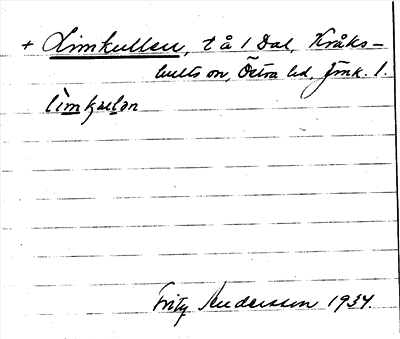 + Limkullen, t å 1 Dal, Kråks-
hults sn, Östra hd, Jönk. l.
lìmkɯlən
Fritz Andersson 1934.